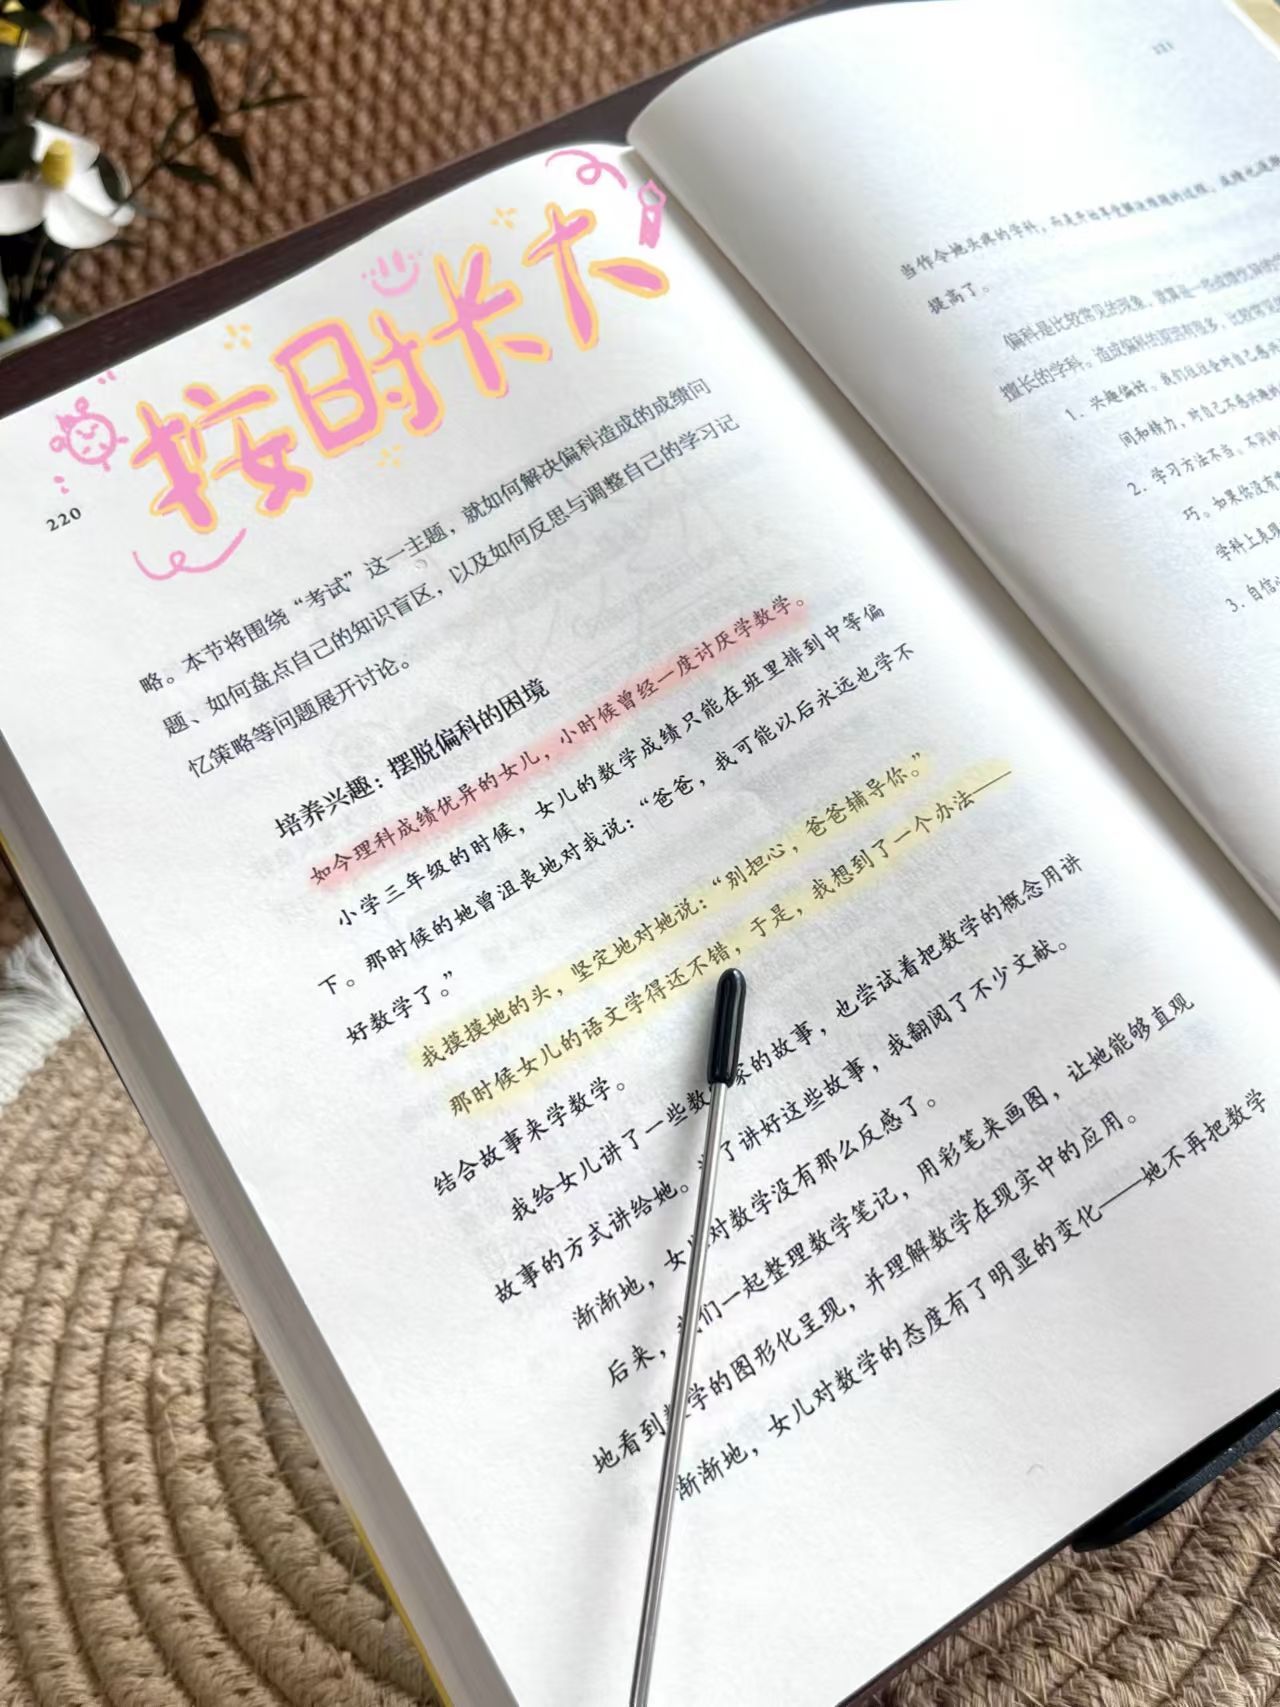 按时长大
220
略。本节将围绕“考试”这一主题，就如何解决偏科造成的成绩问
题、如何盘点自己的知识盲区，以及如何反思与调整自己的学习记
忆策略等问题展开讨论。
培养兴趣：摆脱偏科的困境
如今理科成绩优异的女儿，小时候曾经一度讨厌学数学。
小学三年级的时候，女儿的数学成绩只能在班里排到中等偏
下。那时候的她曾沮丧地对我说：“爸爸，我可能以后永远也学不
好数学了。”
我摸摸她的头，坚定地对她说：“别担心，爸爸辅导你。”
那时候女儿的语文学得还不错，于是，我想到了一个办法——
结合故事来学数学。
我给女儿讲了一些数家的故事，也尝试着把数学的概念用讲
故事的方式讲给她。了讲好这些故事，我翻阅了不少文献。
渐渐地，女对数学没有那么反感了。
后来，我们一起整理数学笔记，用彩笔来画图，让她能够直观
地看到学的图形化呈现，并理解数学在现实中的应用。
渐渐地，女儿对数学的态度有了明显的变化——她不再把数学
当作令她头疼的学科，而是开始享受解决难题的过程，成绩也逐渐
提高了。
偏科是比较常见的现象，就算是一些成绩优异的学
擅长的学科。造成偏科的原因有很多，比较常见
1. 兴趣偏好。我们往往会对自己感兴
间和精力，对自己不感兴趣的
2. 学习方法不当。不同的
巧。如果你没有
学科上表现
3. 自信心